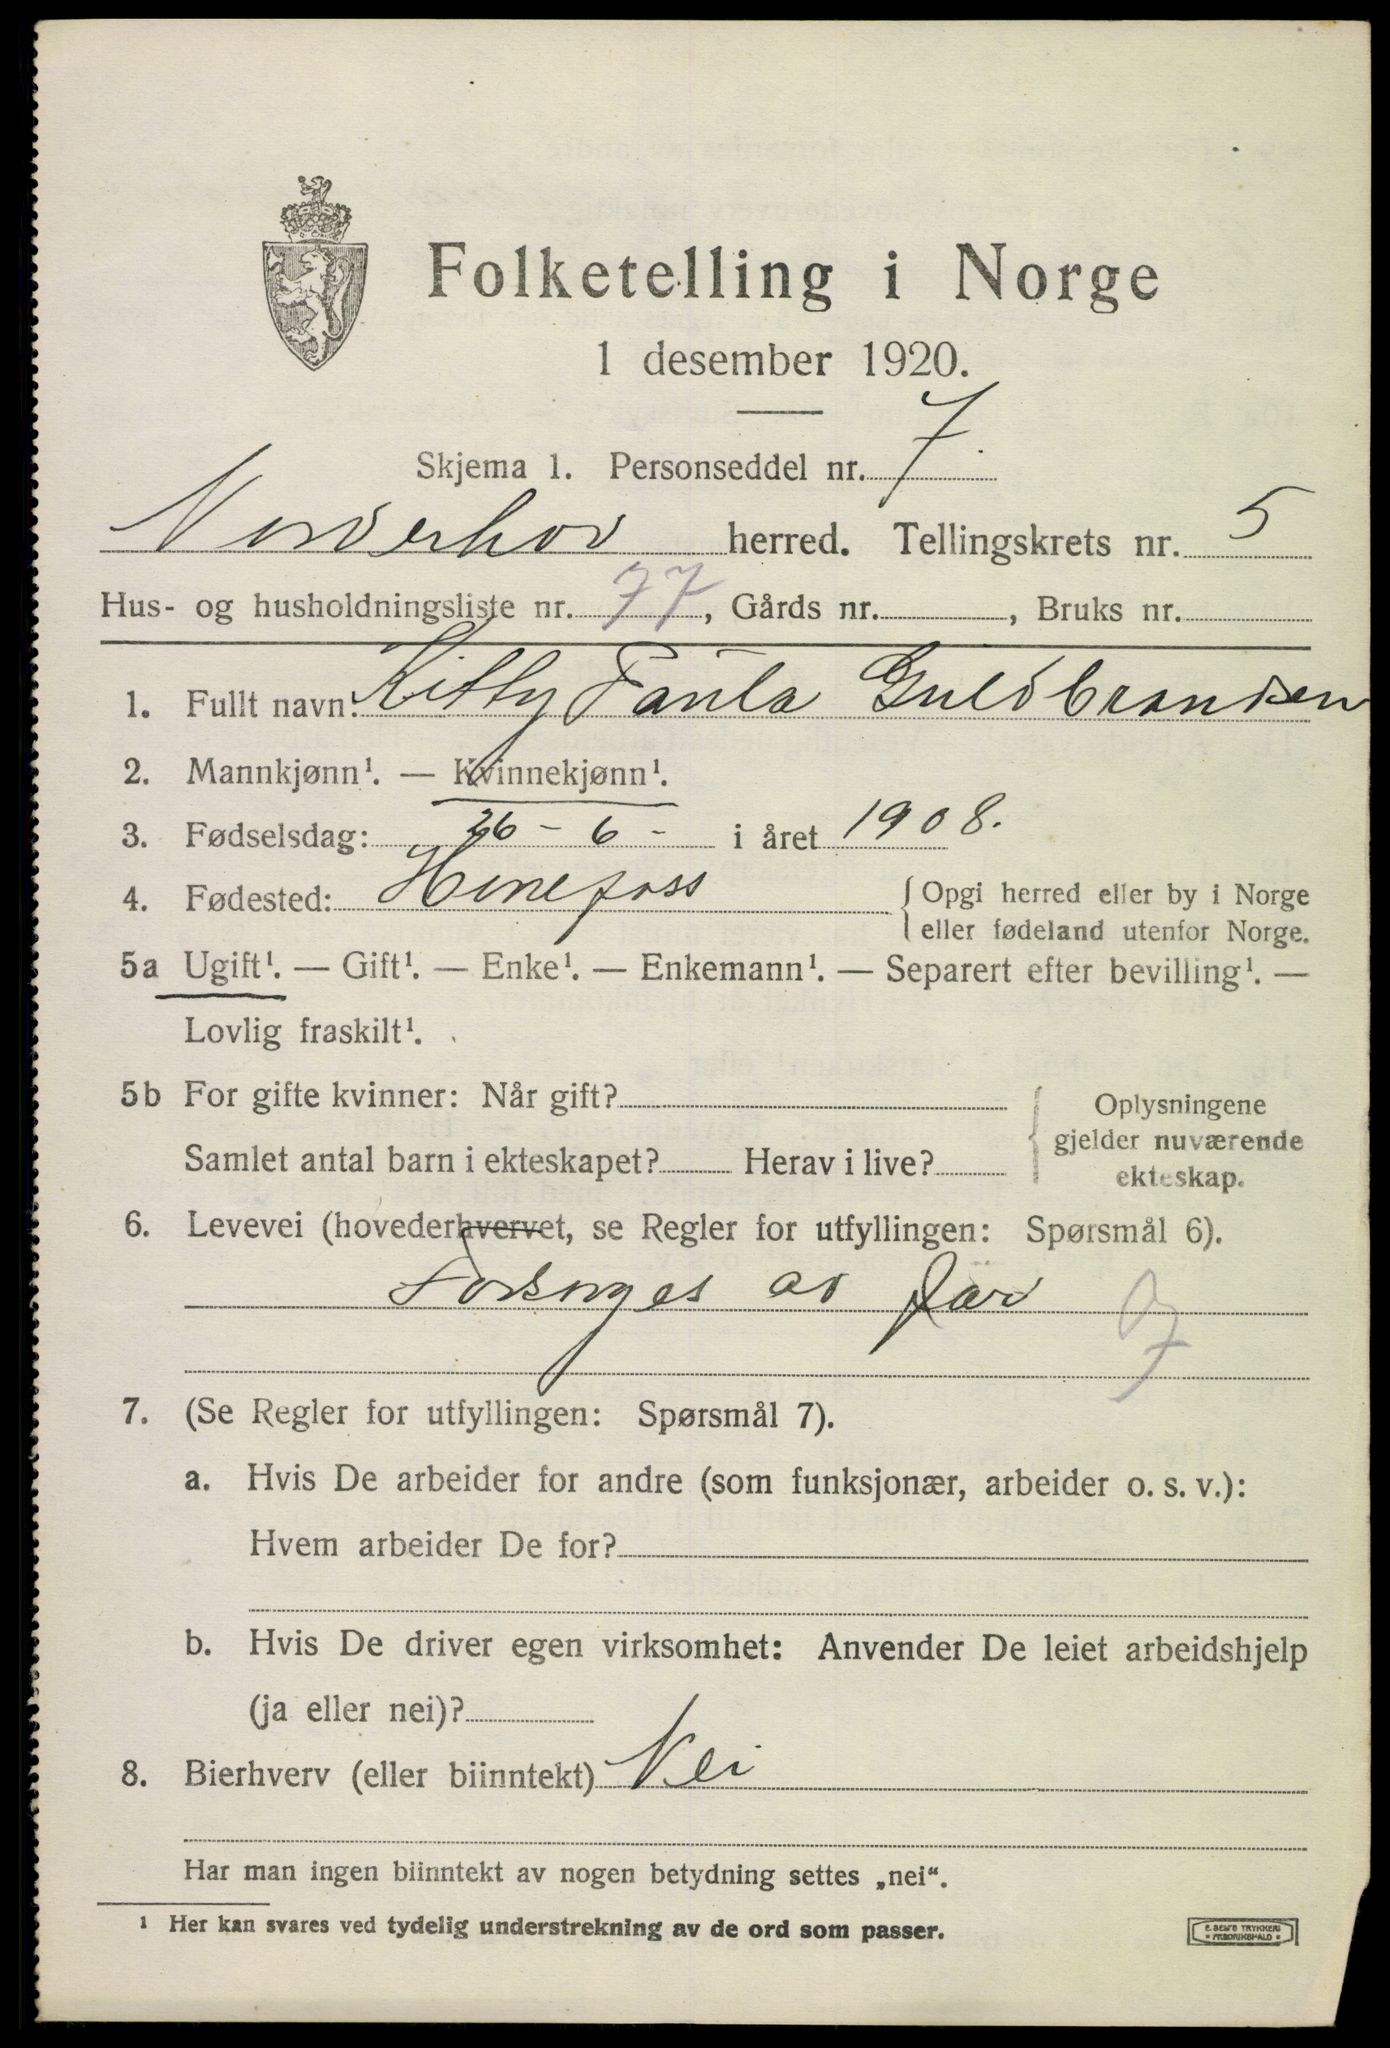 Folketelling i Norge
1 desember 1920.
Skjema 1. Personseddel nr. 7.
Norderhov herred. Tellingskrets nr. 5
Hus- og husholdningsliste nr. 77, Gårds nr. , Bruks nr.
1. Fullt navn: Kitty Paula Guldbrandsen
2. Mannkjønn¹. — Kvinnekjønn¹.
3. Fødselsdag: 26 - 6 - i året 1908.
4. Fødested: Hønefoss { Opgi herred eller by i Norge
eller fødeland utenfor Norge.
5a Ugift¹. — Gift¹. — Enke¹. — Enkemann¹. — Separert efter bevilling¹. —
Lovlig fraskilt¹.
5b For gifte kvinner: Når gift? { Oplysningene
gjelder nuværende
Samlet antal barn i ekteskapet? Herav i live?
ekteskap.
6. Levevei (hovederhvervet, se Regler for utfyllingen: Spørsmål 6).
Forsørges av far
7. (Se Regler for utfyllingen: Spørsmål 7).
a. Hvis De arbeider for andre (som funksjonær, arbeider o. s. v.):
Hvem arbeider De for?
b. Hvis De driver egen virksomhet: Anvender De leiet arbeidshjelp
(ja eller nei)?
8. Bierhverv (eller biinntekt) Nei
Har man ingen biinntekt av nogen betydning settes „nei“.
¹ Her kan svares ved tydelig understrekning av de ord som passer.
E. SEM'S TRYKKERI
• FREDRIKSHALD •